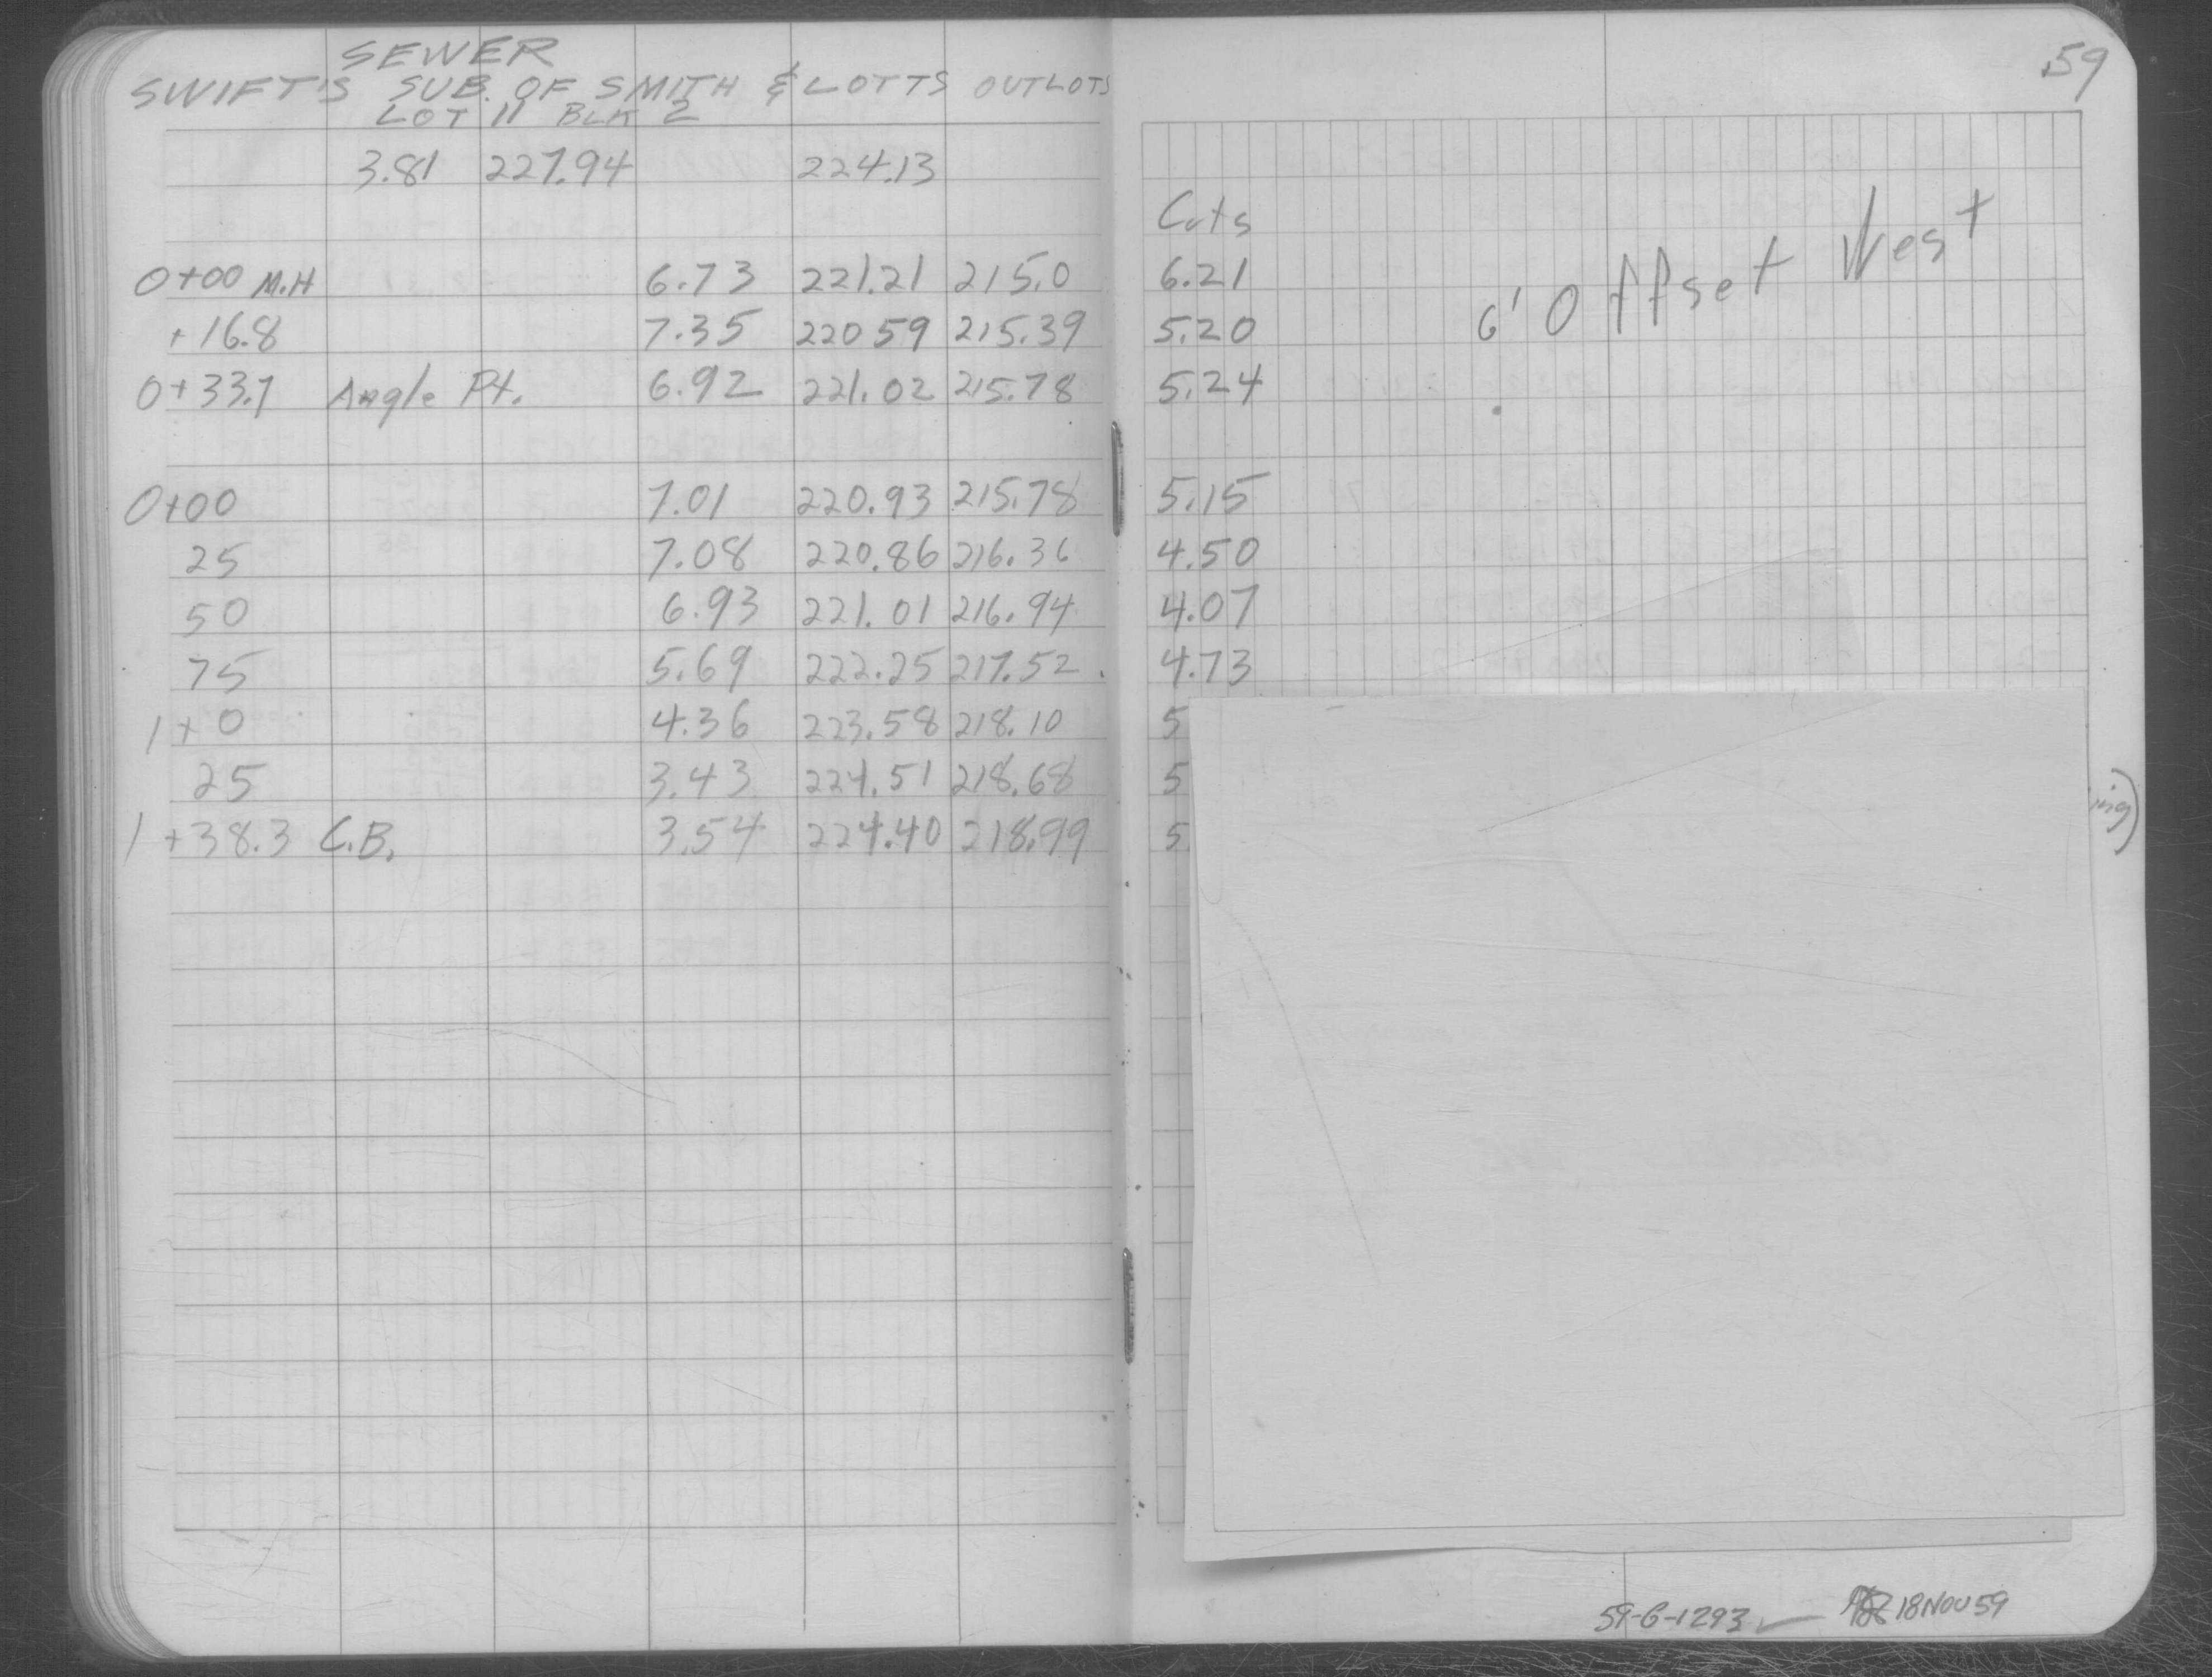 SEWER
SWIFT'S SUB. OF SMITH & LOTTS OUTLOTS
LOT 11 BLK 2
3.81 227.94 224.13
0+00 M.H 6.73 221.21 215.0
+16.8 7.35 220 59 215.39
0+33.7 Angle Pt. 6.92 221.02 215.78
0+00 7.01 220.93 215.78
25 7.08 220.86 216.36
50 6.93 221.01 216.94
75 5.69 222.25 217.52
1+0 4.36 223.58 218.10
25 3.43 224.51 218.68
1+38.3 C.B. 3.54 224.40 218.99
59
Cuts
6.21
5.20
5.24
5.15
4.50
4.07
4.73
5
5
5
6' Offset West
ing)
59-G-1293 18 NOV 59